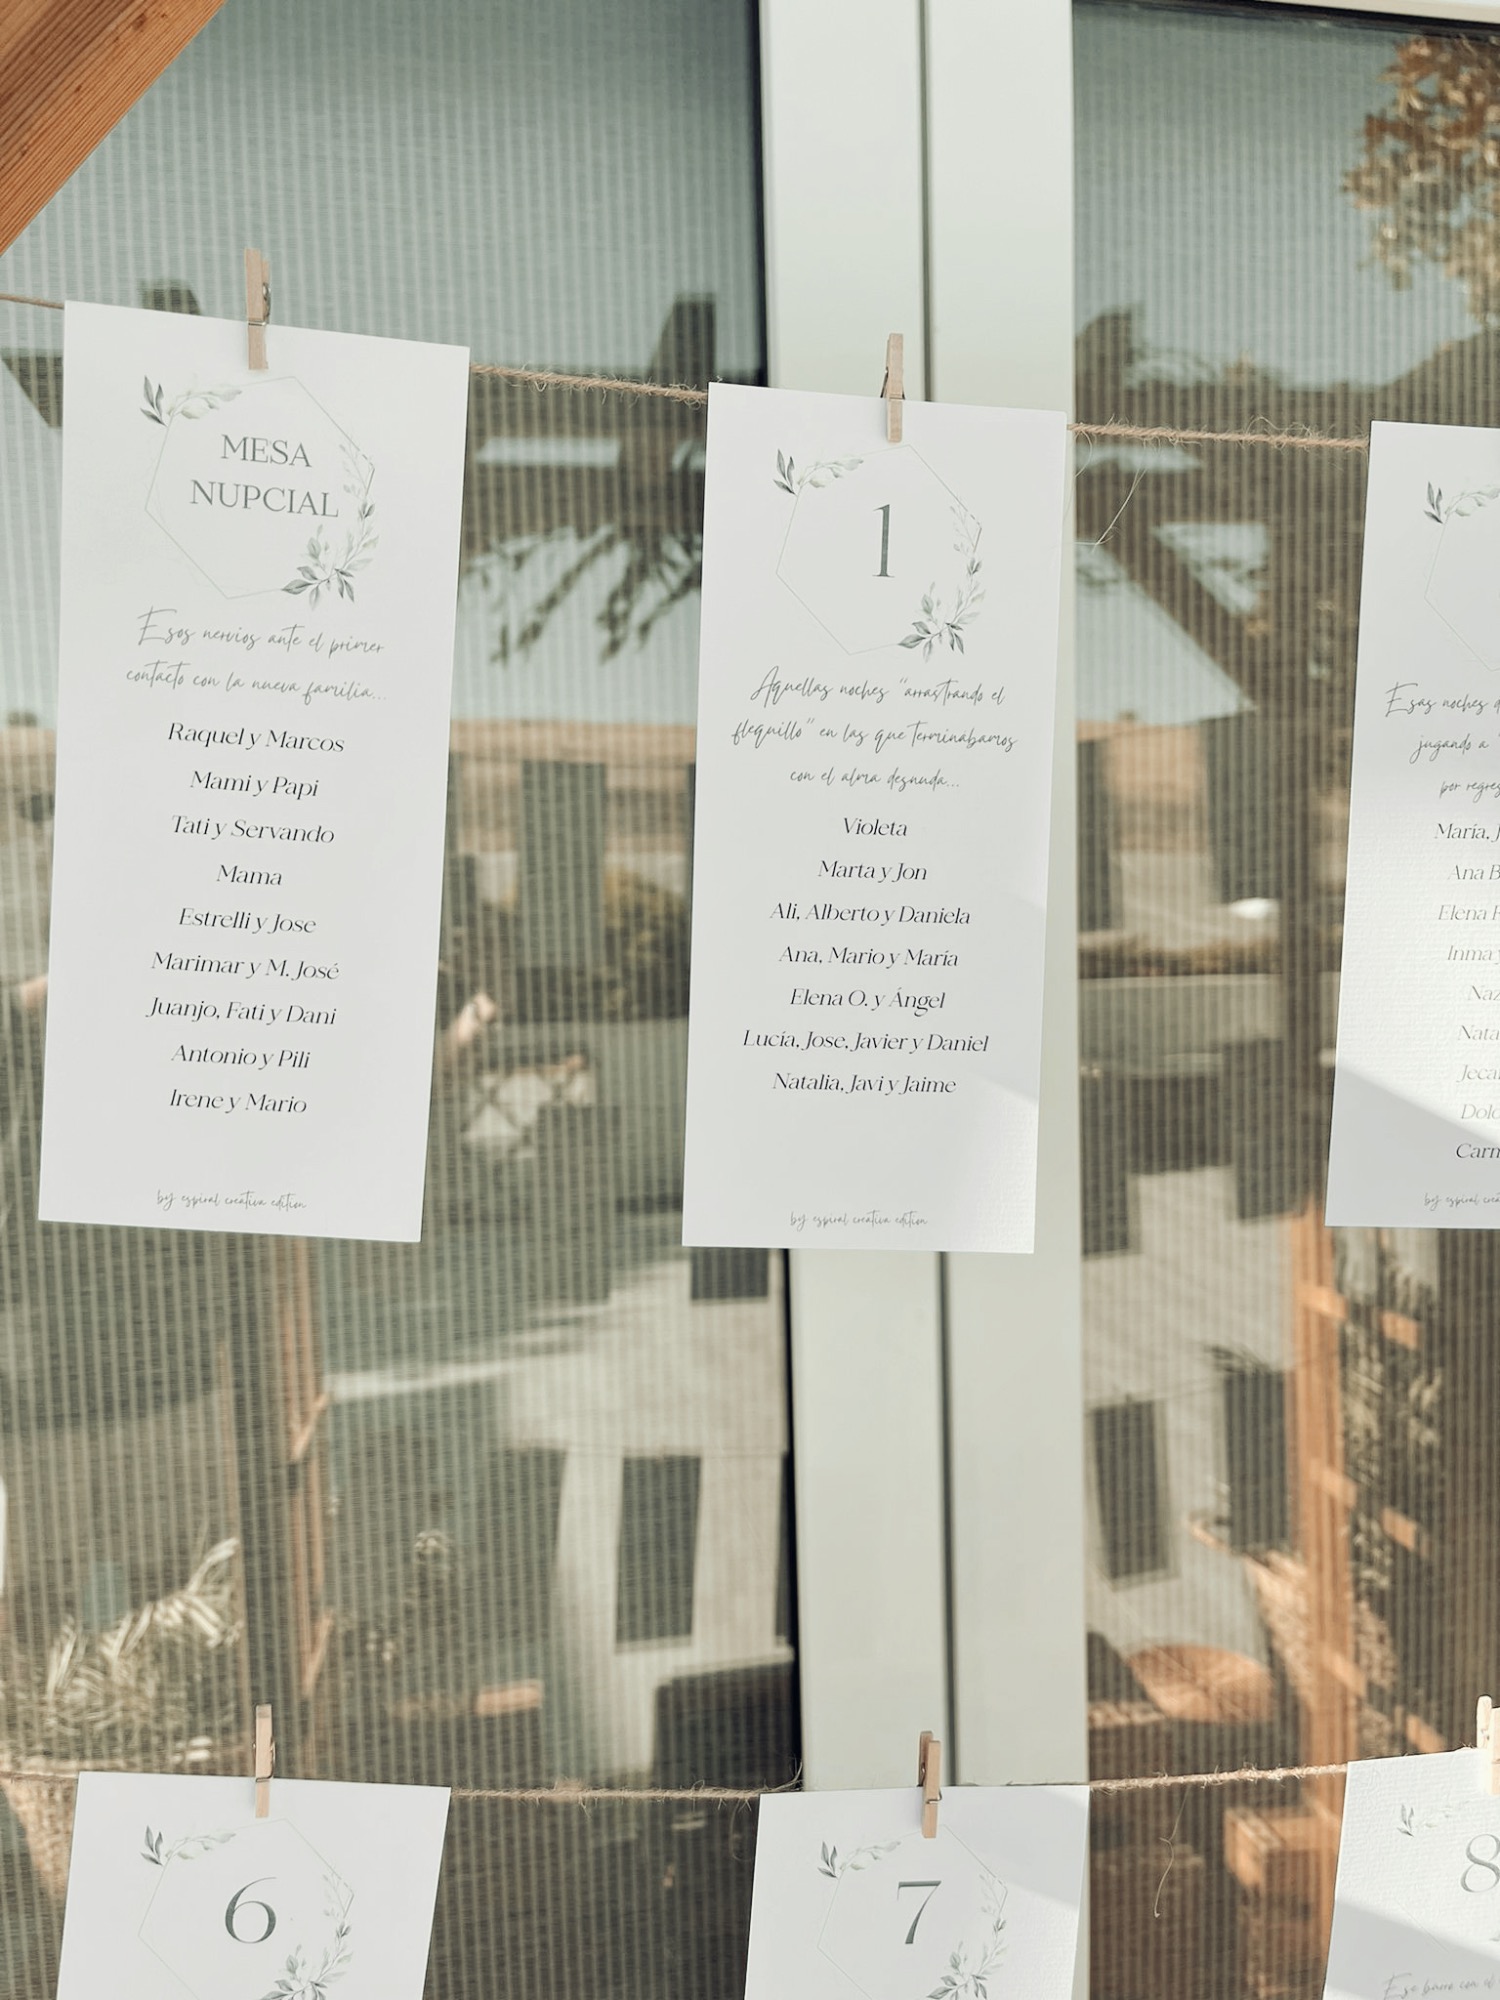 MESA
NUPCIAL
Esos nervios ante el primer
contacto con la nueva familia...
Raquel y Marcos
Mami y Papi
Tati y Servando
Mama
Estrelli y Jose
Marimar y M. José
Juanjo, Fati y Dani
Antonio y Pili
Irene y Mario
by espiral creativa edition
1
Aquellas noches "arrastrando el
flequillo" en las que terminabamos
con el alma desnuda...
Violeta
Marta y Jon
Ali, Alberto y Daniela
Ana, Mario y María
Elena O. y Ángel
Lucía, Jose, Javier y Daniel
Natalia, Javi y Jaime
by espiral creativa edition
Esas noches
jugando a
por
María,
Ana
Elena
Inma
by espiral
6
7
8